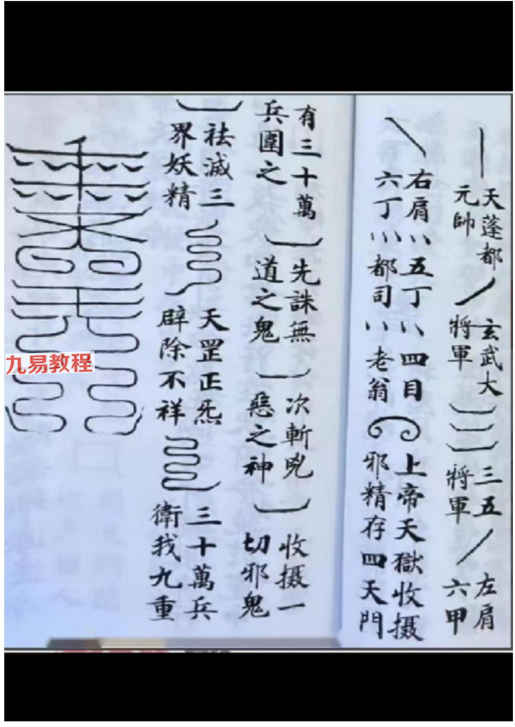 天蓬都元帥
玄武大將軍
三五將軍
左肩六甲
右肩六丁
五丁都司
四目老翁
上帝天獄收摄邪精存四天門
有三十萬兵圍之
先誅無道之鬼
次斬兇惡之神
收摄一切邪鬼
祛滅三界妖精
天罡正炁辟除不祥
三十萬兵衛我九重
九易教程